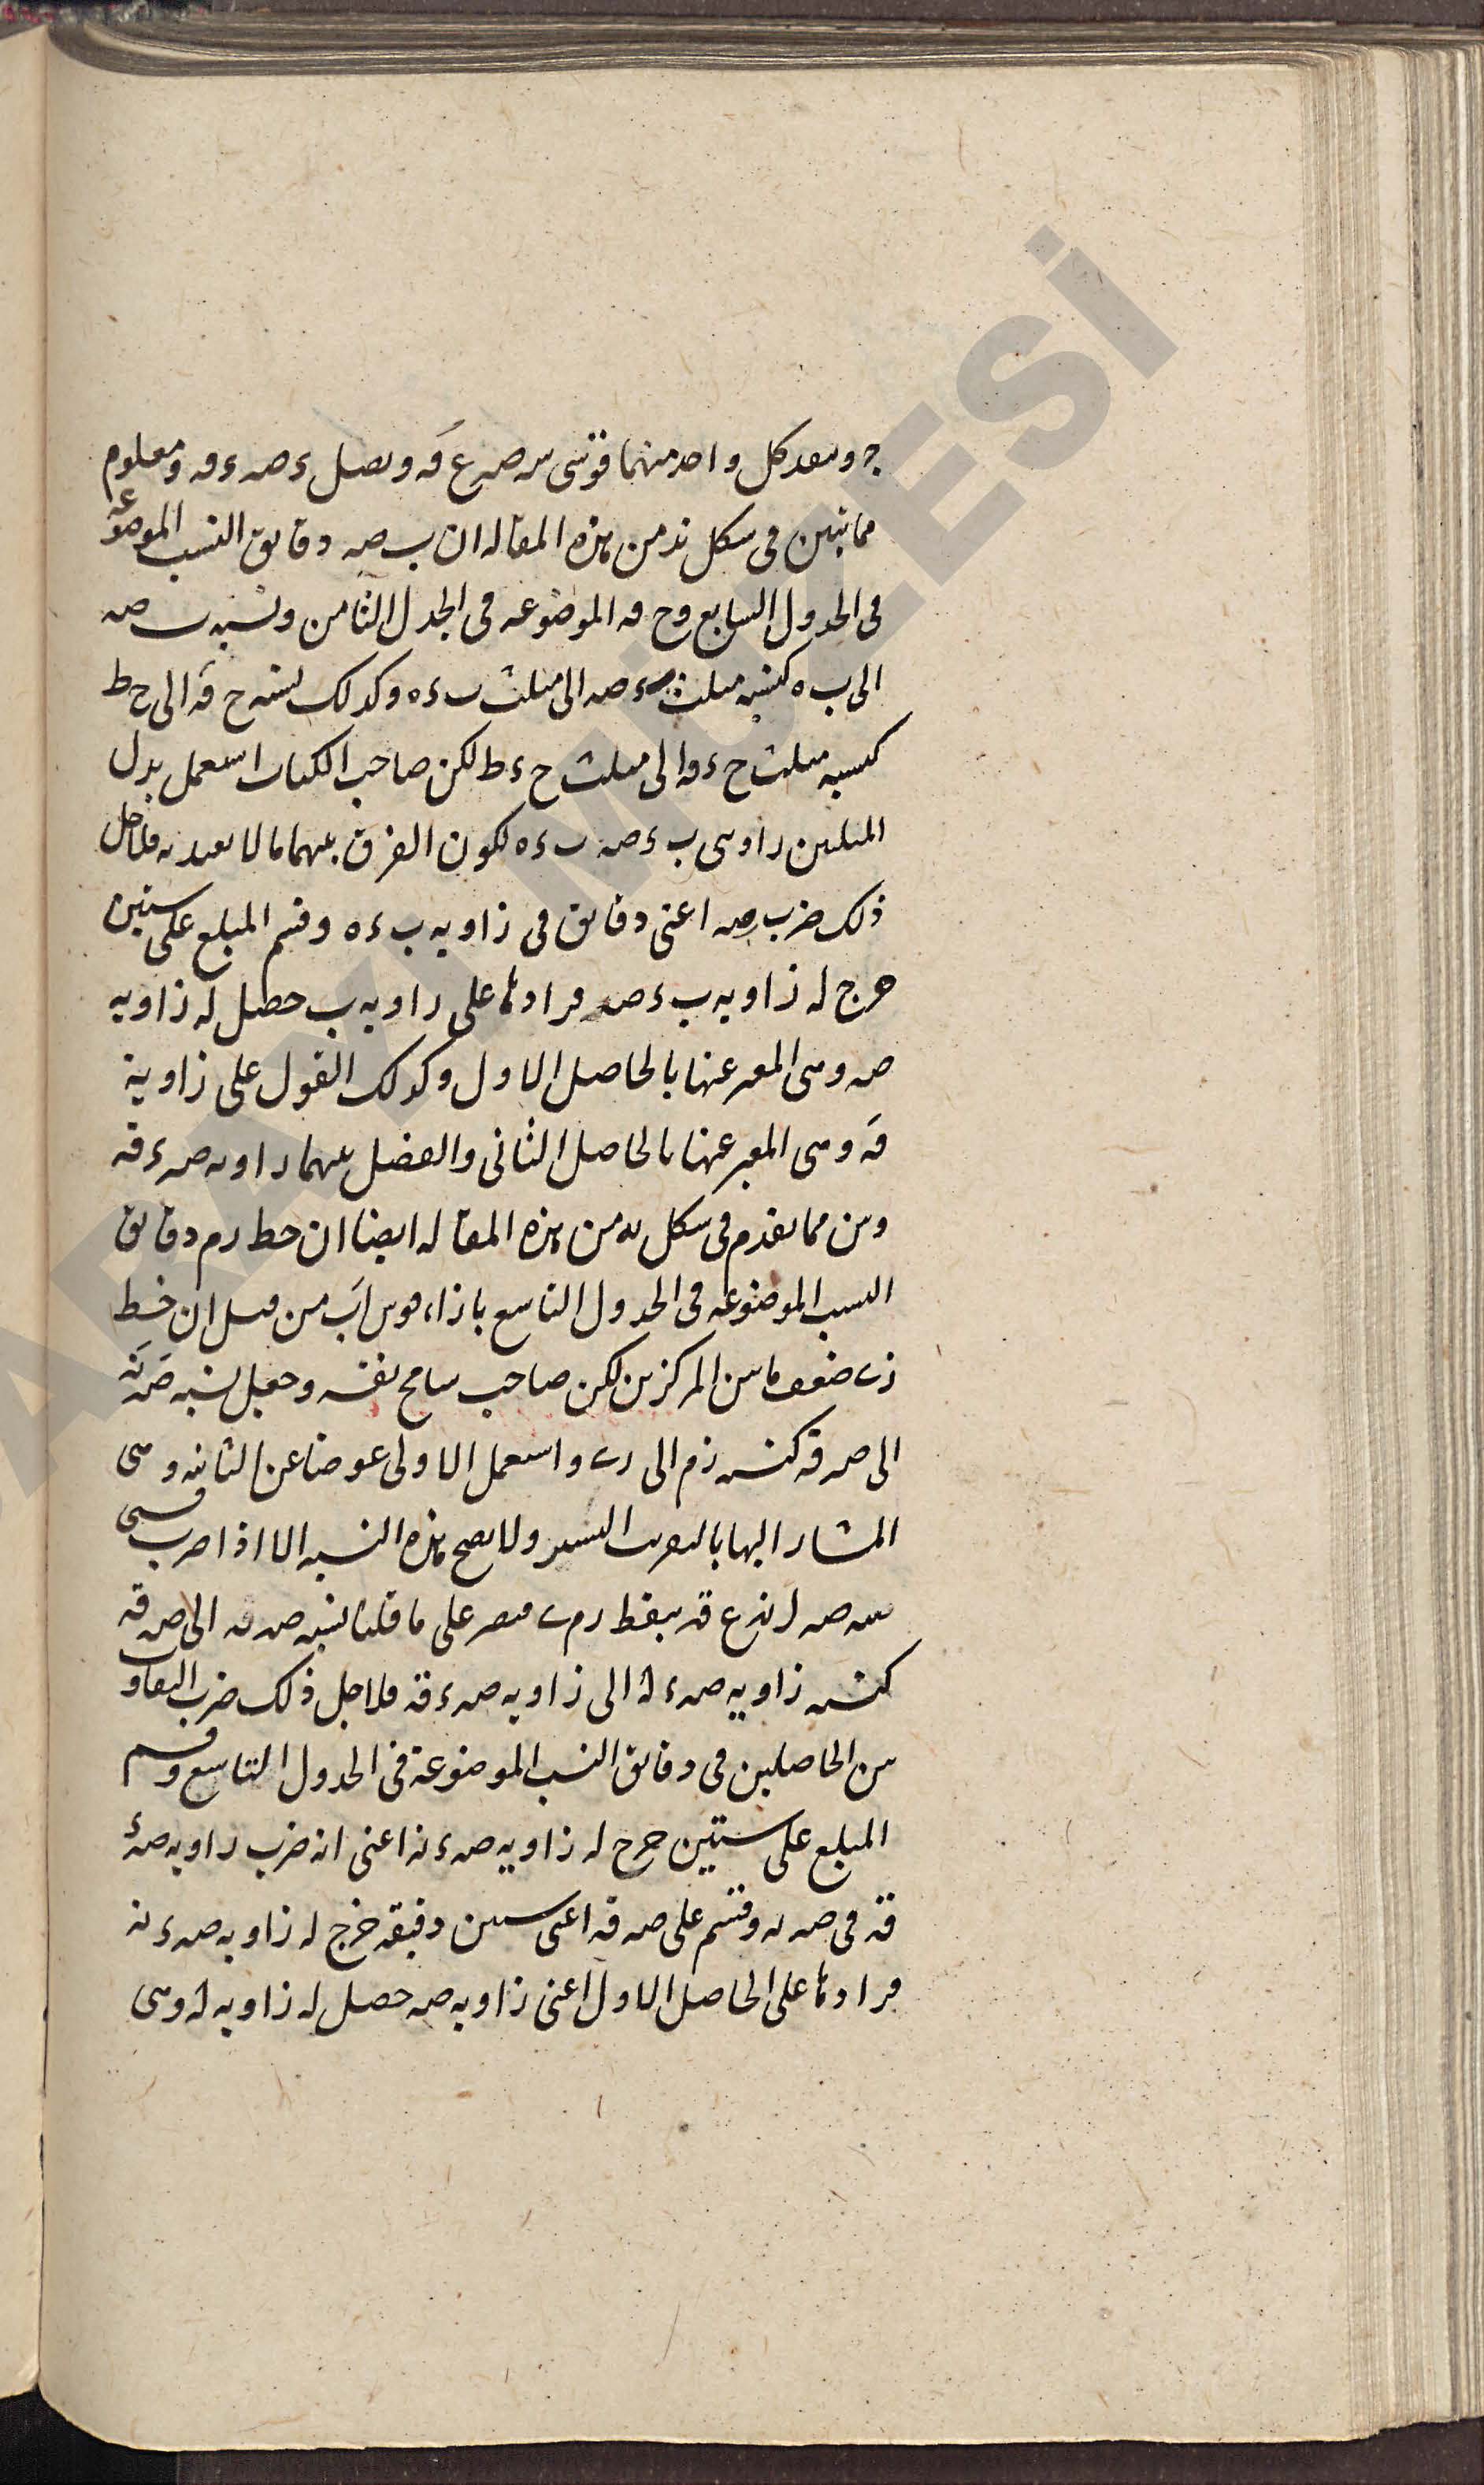 وببعد كل واحد منهما قوسى سه صه ع قه ونصل ء صه ء قه ومعلوم
مما تبين فى شكل ند من هذه المقاله ان ب صه دقايق النسب الموضوعه
فى الجدول السابع وح قه الموضوعه فى الجدل الثامن ونسبه ب صه
الى ب ه كنسبه مثلث ب ء صه الى مثلث ب ء ه وكذلك نسبه ح قه الى ح ط
كنسبه مثلث ح ء قه الى مثلث ح ء ط لكن صاحب الكتاب استعمل بدل
المثلثين زاويتى ب ء صه ب ء ه لكون الفرق بينهما مالا يعتد به فلاجل
ذلك ضرب صه اعنى دقايق فى زاويه ب ء ه وقسم المبلغ على ستين
خرج له زاويه ب ء صه فزادها على زاويه ب حصل له زاويه
صه وهى المعبر عنها بالحاصل الاول وكذلك القول على زاوية
قه وهى المعبر عنها بالحاصل الثانى والفضل بينهما زاويه صه ء قه
وبين مما تقدم فى شكل من هذه المقاله ايضا ان خط رم دقايق
النسب الموضوعه فى الجدول التاسع بازاء قوس اب من قبل ان خط
ضعف ما بين المركزين لكن صاحب سامح نفسه وجعل نسبه صه نه
الى صه قه كنسبه زم الى واستعمل الاولى عوضا عن الثانيه وهى
المشار اليها بالتقريب اليسير ولا يصح هذه النسبه الا اذا ضرب قسى
سه صه ل نه ع قه بنقط فيصير على ما قلنا نسبه صه نه الى صه قه
كنسبه زاويه صه ء نه الى زاويه صه ء قه فلاجل ذلك ضرب التفاوت
بين الحاصلين فى دقايق النسب الموضوعة فى الجدول التاسع وقسم
المبلغ على ستين خرج له زاويه صه ء نه اعنى انه ضرب زاويه صه ء
قه فى صه نه وقسم على صه قه اعنى ستين دقيقه خرج له زاويه صه ء نه
فزادها على الحاصل الاول اعنى زاويه صه حصل له زاويه نه وهى